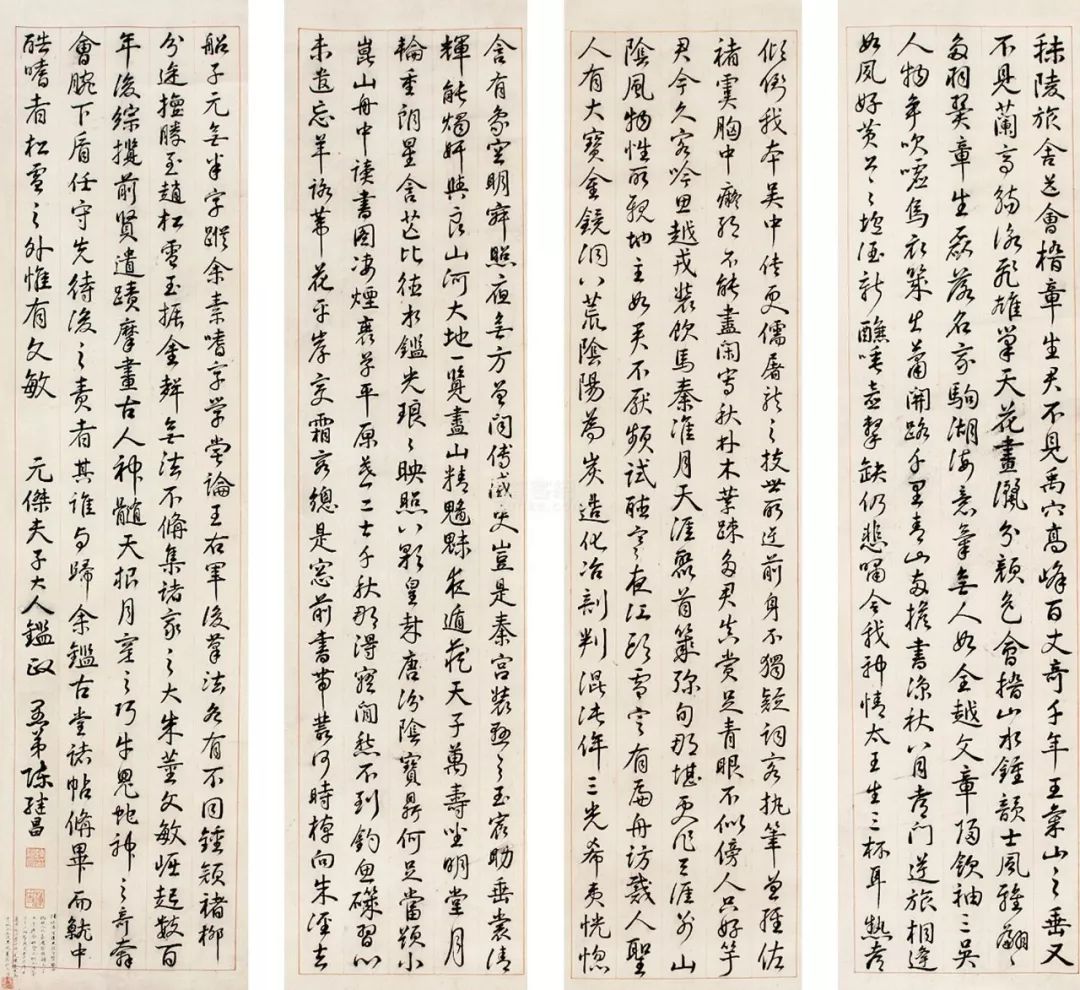 秣陵旅舍送會稽章生君不見禹穴高峰百丈奇千年王氣山之垂又
不見蘭亭觴詠飛雄筆天花畫灑分顏色會稽山水鍾韻士風雅翩
翩羽翼章生磊落名家駒湖海意氣無人如全越文章歸領袖三吳
人物爭吹噓馬衣策生蕭開路千里青山女擔書涼秋八月青門逆旅相逢
如夙好黃公之壚酒新醮唾壺擊缺仍悲嘯令我神情太王生三杯耳熱
傾倒我本吳中佳吏儒屠龍之技世所逆前身不獨疑詞客執筆兼羅佐
褚寞胸中癡能不能盡閒寫秋林木葉疎君真賞足青眼不似傍人只好竽
君今久客吟思越戎裝飲馬秦淮月天涯聚首策彌旬那堪更作天涯別山
陰風物性所親地主如君不厭頻試聽寒夜江頭雪定有扁舟訪戴人聖
人有大寶金鏡洞八荒陰陽為炭造化冶剖判混沌侔三光希夷恍惚
含有象空明寂照夜無方曾聞傳滅史豈是秦宮裝熊之玉宸助垂裳清
輝能燭奸與良山河大地一覽盡山精魑魅走遁藏天子萬壽坐明堂月
輪重朗星含芒比德水鑑光琅琅映照八彩皇封唐汾陰寶鼎何足當題小
崑山舟中讀書圖淒煙衰草平原差二士千秋那得寤閒愁不到釣魚磯習心
未遺忘羊詠葦花平岸交霜客總是窗前書帶叢何時棹向朱涇去
船子元無半字蹤余素嗜字學嘗論王右軍後筆法各有不同鍾顏褚柳
分途擅勝至趙松雪玉振金聲無法不備集諸家之大朱董文敏崛起數百
年後綜攬前賢遺蹟摩畫古人神髓天根月窟之巧牛鬼蛇神之奇奔
會腕下盾任守先待後之責者其誰與歸余鑑古堂諸帖備畢而觥中
酷嗜者松雪之外惟有文敏　元傑夫子大人鑑政　愚弟陳繼昌